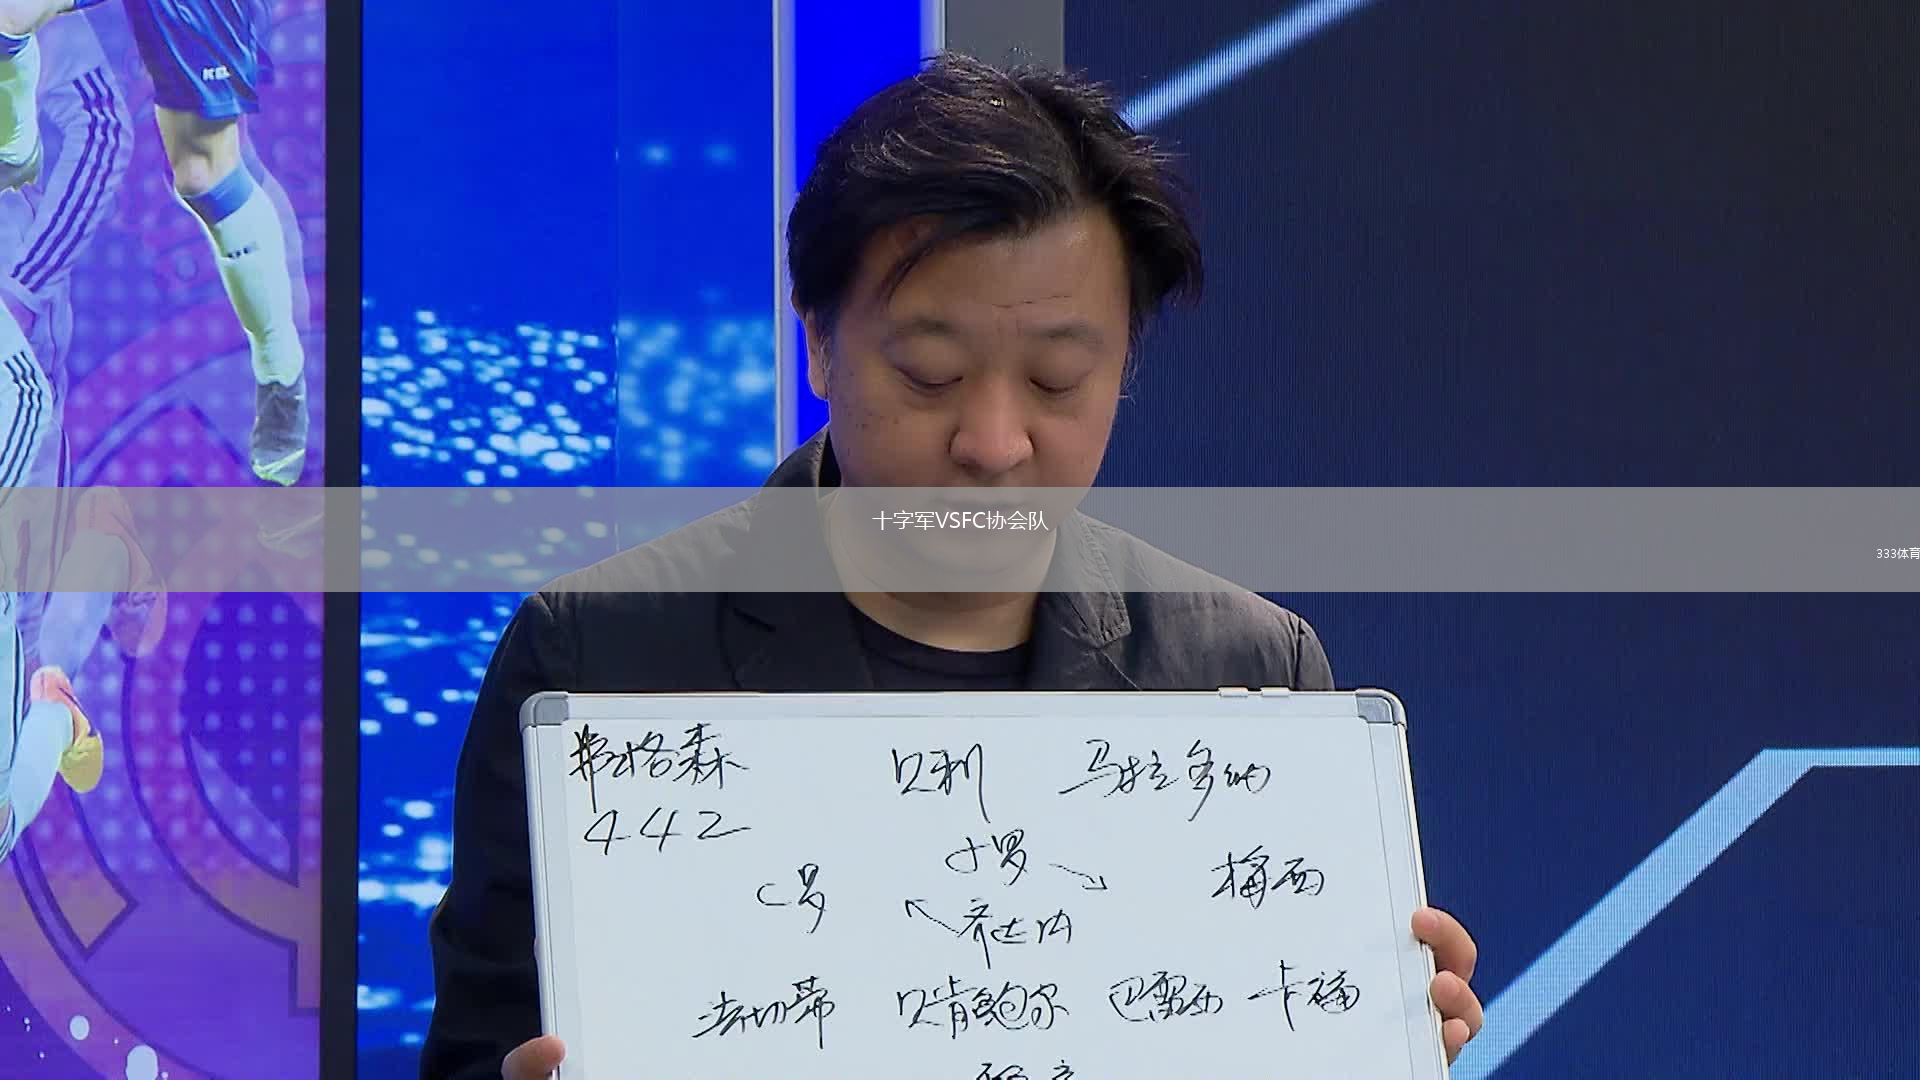 KEL
十字军VSFC协会队
333体育
弗格森 贝利 马拉多纳
442
小罗
C罗 梅西
齐达内
法切蒂 贝肯鲍尔 巴雷西 卡福